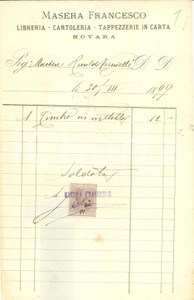 MASERA FRANCESCO
LIBRERIA - CARTOLERIA - TAPPEZZERIE IN CARTA
NOVARA
Sig.
D. D.
li 20/III 1899
1 Timbro in metallo 12 -
Soldato
MASERA FRANCESCO